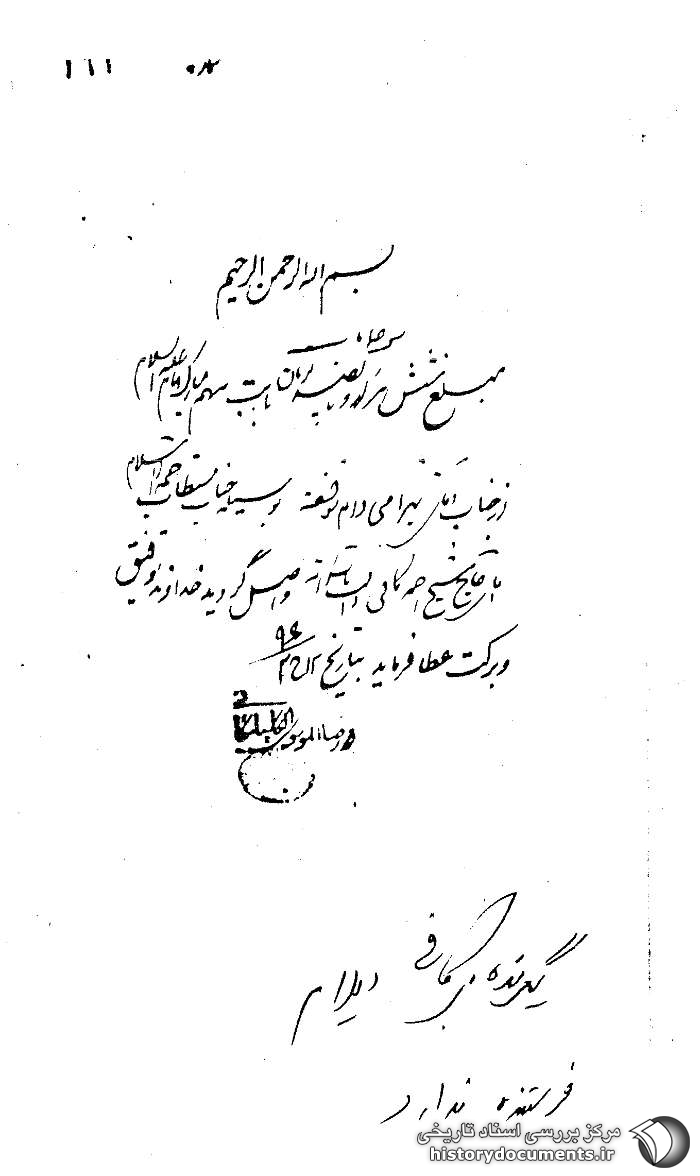 ۱۶۱
بسم الله الرحمن الرحیم
مبلغ شش هزار و پانصد تومان بابت سهم مبارک امام علیه السلام
از جناب آقای تهرامی دام توفیقه بوسیله جناب مستطاب حجة الاسلام
آقای حاج شیخ احمد کافی دامت تأییداته واصل گردید خداوند توفیق
و برکت عطا فرماید بتاریخ ۹۶
محمد رضا الموسوی الگلپایگانی
گیرنده کافی ایلام
فرستنده ندارد
مرکز بررسی اسناد تاریخی
historydocuments.ir